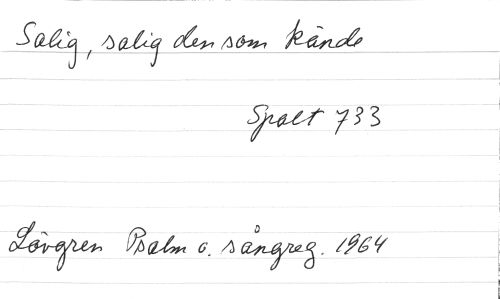 Salig, salig den som kände
Spalt 733
Lövgren Psalm o. sångreg. 1964